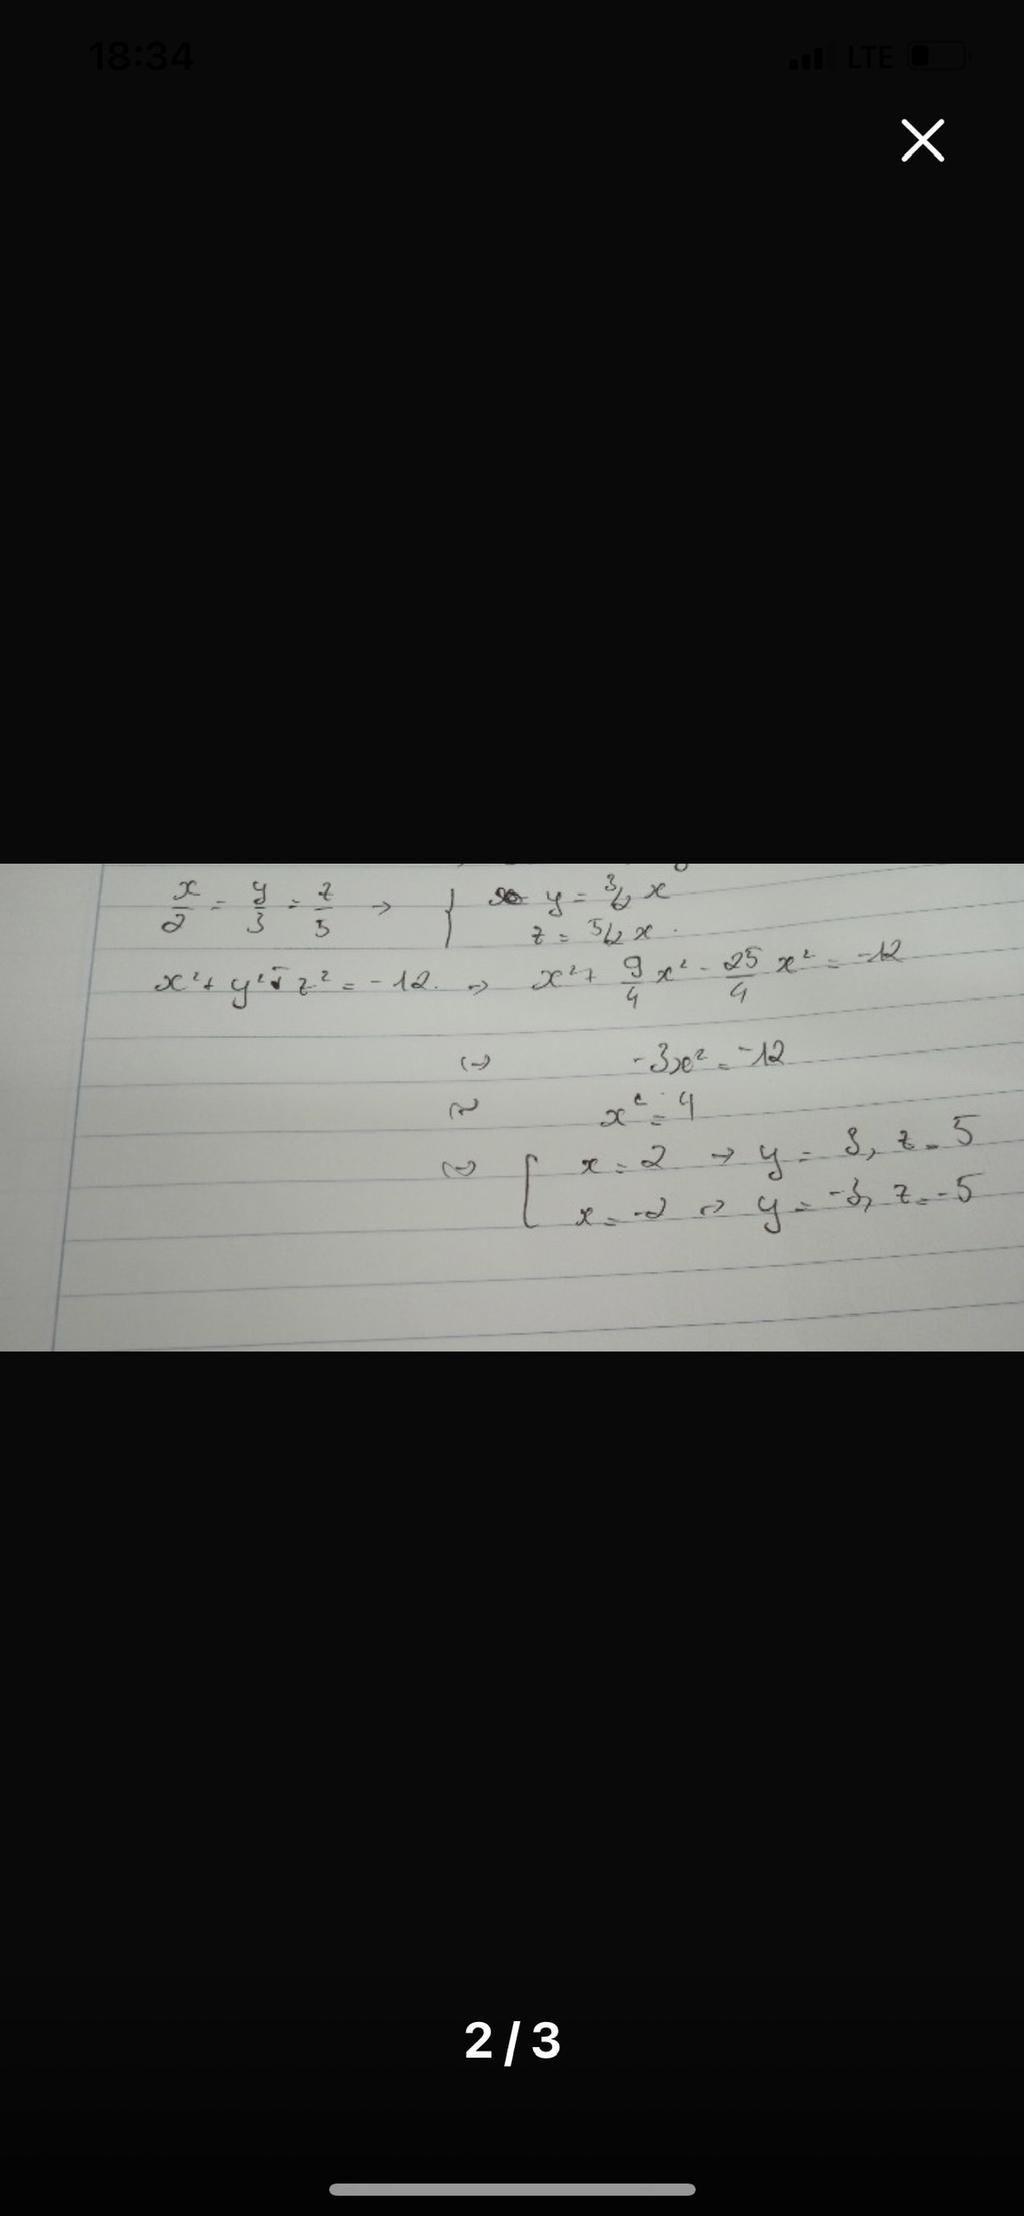 18:34
LTE
x/2 = y/3 = z/5 → { y = 3/2 x
z = 5/2 x.
x² + y² - z² = -12. → x² + 9/4 x² - 25/4 x² = -12
(→) -3x² = -12
x² = 4
x = 2 → y = 3, z = 5
x = -2 → y = -3, z = -5
2/3